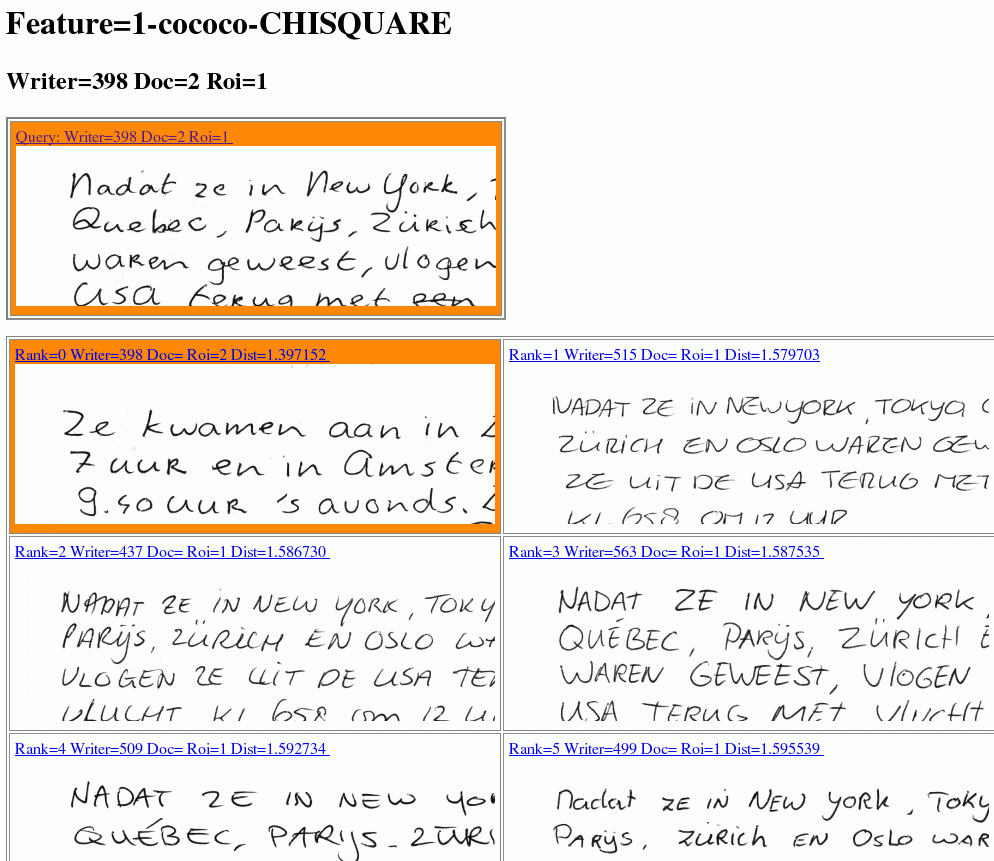 Feature=1-cococo-CHISQUARE
Writer=398 Doc=2 Roi=1
Query: Writer=398 Doc=2 Roi=1
Nadat ze in New York,
Quebec, Parijs, Zürich
waren geweest, vlogen
USA terug met een
Rank=0 Writer=398 Doc= Roi=2 Dist=1.397152
Ze kwamen aan in
7 uur en in Amster
9.50 uur 's avonds.
Rank=1 Writer=515 Doc= Roi=1 Dist=1.579703
NADAT ZE IN NEW YORK, TOKYO
ZÜRICH EN OSLO WAREN GEW
ZE UIT DE USA TERUG MET
KL 658 OM 12 UUR
Rank=2 Writer=437 Doc= Roi=1 Dist=1.586730
NADAT ZE IN NEW YORK, TOKY
PARIJS, ZÜRICH EN OSLO WA
VLOGEN ZE UIT DE USA TER
VLUCHT KL 658 om 12 U
Rank=3 Writer=563 Doc= Roi=1 Dist=1.587535
NADAT ZE IN NEW YORK,
QUÉBEC, PARIJS, ZÜRICH E
WAREN GEWEEST, VlOGEN
USA TERUG MET Vlucht
Rank=4 Writer=509 Doc= Roi=1 Dist=1.592734
NADAT ZE IN NEW YO
QUÉBEC, PARIJS, ZÜRI
Rank=5 Writer=499 Doc= Roi=1 Dist=1.595539
Nadat ZE IN NEW YORk, TOKY
PARIJS, ZÜRICH EN OSLO WAR